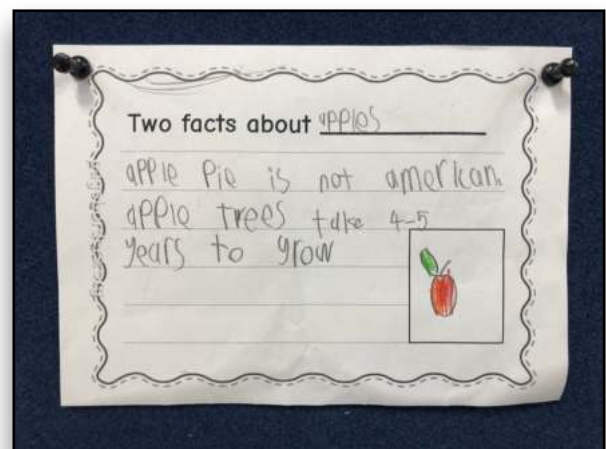 Two facts about apples
apple pie is not american.
apple trees take 4-5
years to grow